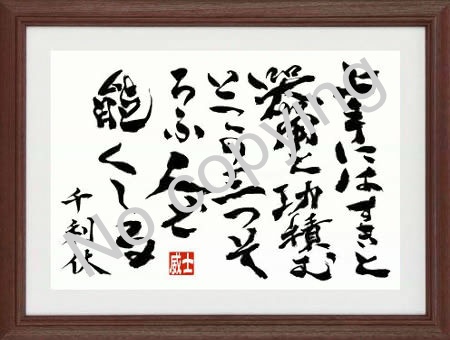 上手にはすきと
器用と功積むと
この三つそ
ろふ人ぞ
能くしる
千利休
威士
No copying